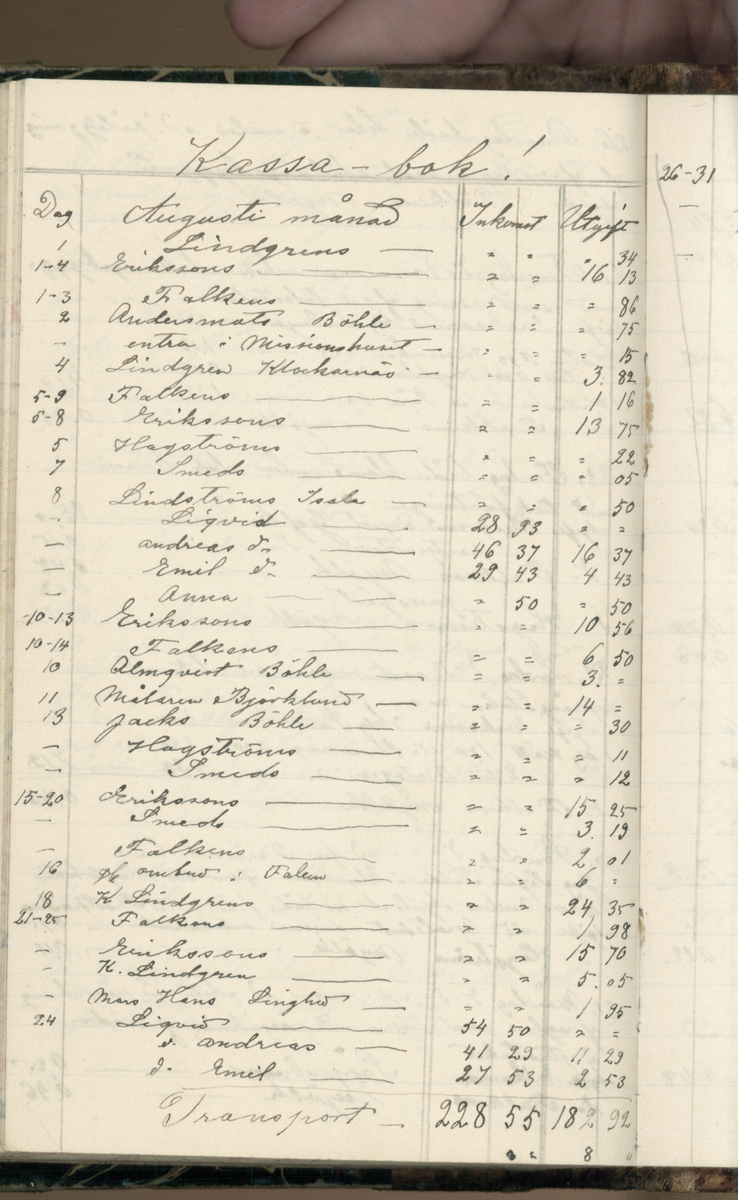 Kassa-bok!
26-31
Dag Augusti månad Inkomst Utgift
1 Lindgrens — " " " 34
1-4 Erikssons — " " 16 13
1-3 Falkens — " " " 86
2 Andersmats Böhle — " " " 75
— entra i Missionshuset — " " " 15
4 Lindgren Klockarnäs — " " 3. 82
5-9 Falkens — " " 1 16
5-8 Erikssons — " " 13 75
5 Hagströms — " " " 22
7 Smeds — " " " 05
8 Lindströms — " " " 50
-. Liqvid — 28 93 " "
— andreas d. — 46 37 16 37
— Emil d. — 29 43 4 43
— Anna — " 50 " 50
10-13 Erikssons — " " 10 56
10-14 Falkens — " " 6 50
10 Almqvist Böhle — " " 3. "
11 Målaren Björklund — " " 14 "
13 Jacks Böhle — " " " 30
— Hagströms — " " " 11
— Smeds — " " " 12
15-20 Erikssons — " " 15 25
— Smeds — " " 3. 19
— Falkens — " " 2 01
16 ombud i Falun — " " 6 "
18 K Lindgrens — " " 24 35
21-25 Falkens — " " 1 98
— Erikssons — " " 15 70
- K. Lindgren — " " 5.05
- Mars Hans Linghed — " " 1 95
24 Liqvid — 54 50 " "
d. andreas — 41 29 11 29
d. Emil — 27 53 2 53
Transport — 228 55 182 92
" " 8 "